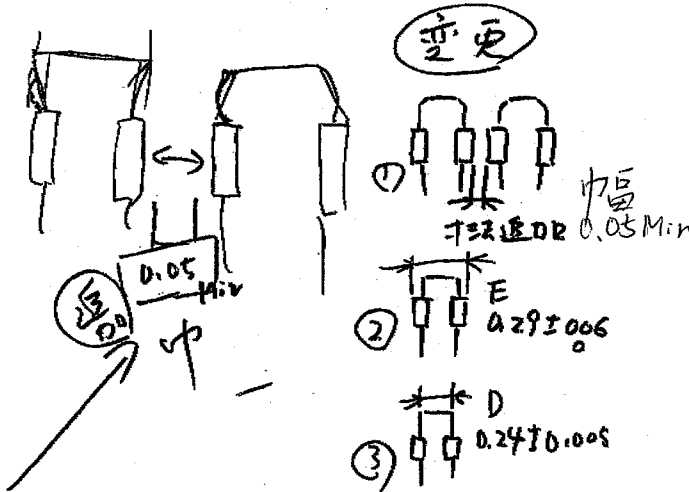 変更
①
寸法追加 巾畐 0.05 Min
0.05
Min
追加
巾
② E
0.29±006
0
③ D
0.24±0.005